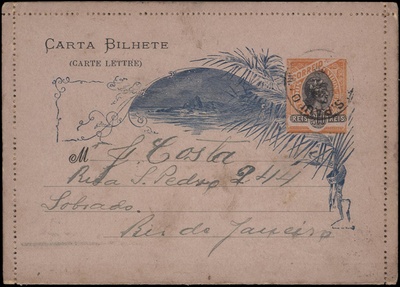 CARTA BILHETE
(CARTE LETTRE)
CORREIO
REIS REIS
M J. Costa
Rua S. Pedro 244
Sobrado.
Rio de Janeiro